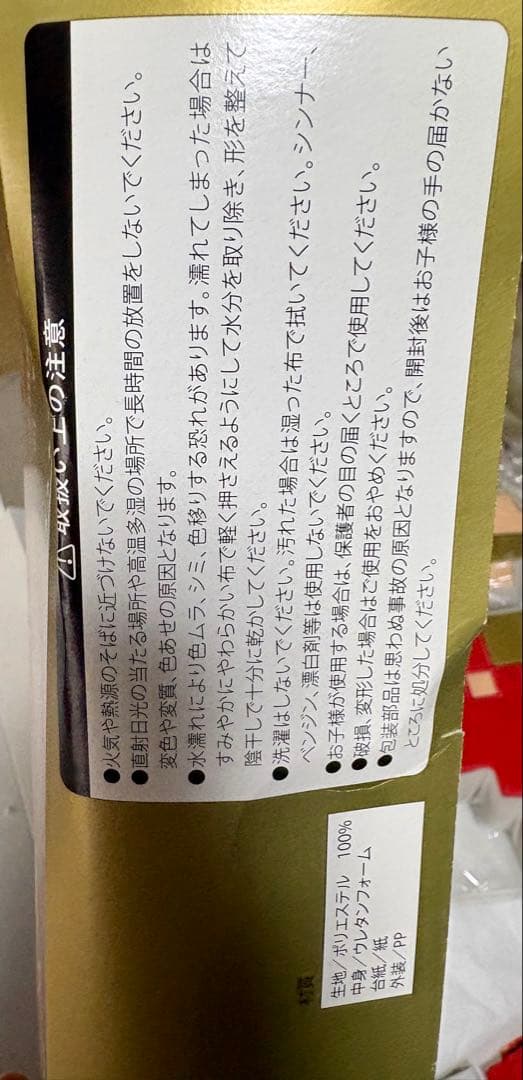 ⚠ 取扱い上の注意
●火気や熱源のそばに近づけないでください。
●直射日光の当たる場所や高温多湿の場所で長時間の放置をしないでください。
変色や変質、色あせの原因となります。
●水濡れにより色ムラ、シミ、色移りする恐れがあります。濡れてしまった場合は
すみやかにやわらかい布で軽く押さえるようにして水分を取り除き、形を整えて
陰干しで十分に乾かしてください。
●洗濯はしないでください。汚れた場合は湿った布で拭いてください。シンナー、
ベンジン、漂白剤等は使用しないでください。
●お子様が使用する場合は、保護者の目の届くところで使用してください。
●破損、変形した場合はご使用をおやめください。
●包装部品は思わぬ事故の原因となりますので、開封後はお子様の手の届かない
ところに処分してください。
材質
生地/ポリエステル 100%
中身/ウレタンフォーム
台紙/紙
外装/PP